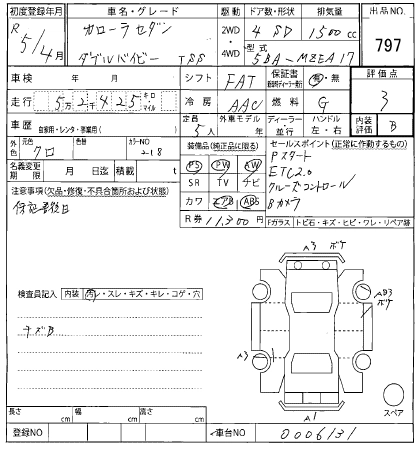 初度登録年月
車名・グレード
駆動
ドア数・形状
排気量
出品NO.
R 5/4月
カローラ セダン
ダブルバイビー TSS
2WD
4WD
4 SD
1500 cc
797
型式
5BA-MZEA17
車検 年 月
シフト
FAT
保証書
有・無
評価点
走行 5万2千425 キロ マイル
冷房
AAC
燃料
G
3
車歴
自家用・レンタ・事業用( )
定員
5人
外車モデル
年
ディーラー
並行
ハンドル
左・右
内装評価
B
外色
元色 クロ
色替
カラーNO 218
装備品(純正品に限る)
PS PW AW
SR TV ナビ
カワ エアB ABS
R券 11,300円
セールスポイント(正常に作動するもの)
Pスタート
ETC2.0
クルーズコントロール
Bカメラ
名義変更期限 月 日
積載 t
注意事項(欠品・修復・不具合箇所および状態)
保記書後日
Fガラス トビ石・キズ・ヒビ・ワレ・リペア跡
検査員記入
内装 ・スレ・キズ・キレ・コゲ・穴
キズB
A3 ボケ
AB3
ボケ
A3
A1
スペア
長さ cm
幅 cm
高さ cm
登録NO
車台NO
0006131